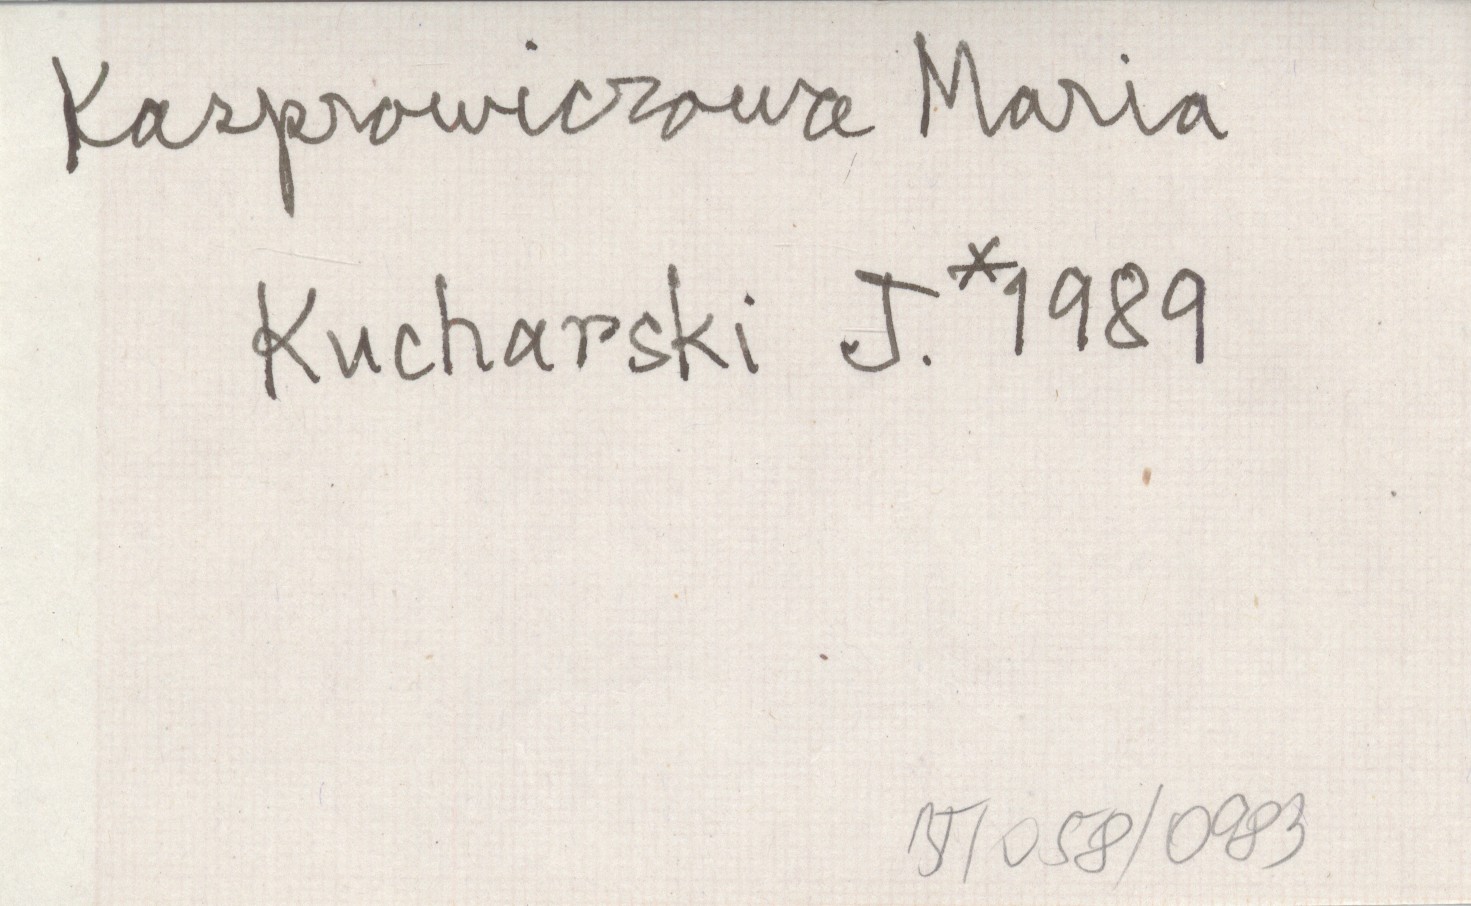 Kasprowiczowa Maria
Kucharski J.*1989
BJ/058/0983